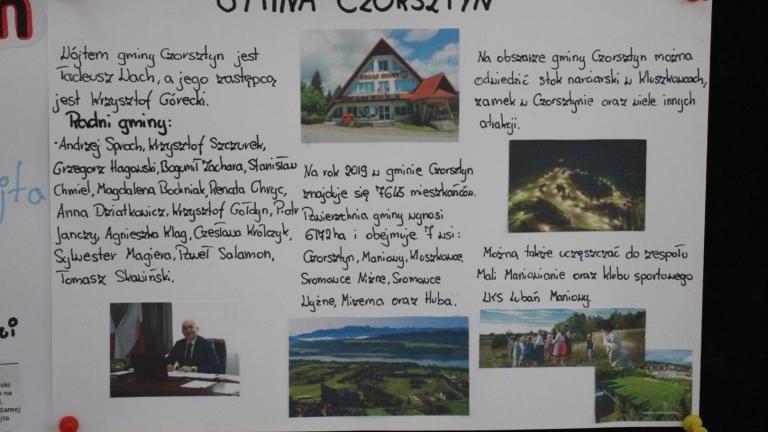 GMINA CZORSZTYN
Wójtem gminy Czorsztyn jest
Tadeusz Wach, a jego zastępcą
jest Krzysztof Górecki.
Radni gminy:
-Andrzej Sproch, Krzysztof Szczurek,
Grzegorz Hagowski, Bogumił Zachara, Stanisław
Chmiel, Magdalena Bodniak, Renata Chryc,
Anna Działkowicz, Krzysztof Gołdyn, Piotr
Janczy, Agnieszka Klag, Czesława Królczyk,
Sylwester Magiera, Paweł Salamon,
Tomasz Skawiński.
URZĄD GMINY
Na rok 2019 w gminie Czorsztyn
znajduje się 7645 mieszkańców.
Powierzchnia gminy wynosi
6172ha i obejmuje 7 wsi:
Czorsztyn, Maniowy, Kluszkowce,
Sromowce Niżne, Sromowce
Wyżne, Mizerna oraz Huba.
Na obszarze gminy Czorsztyn można
odwiedzić stok narciarski w Kluszkowcach,
zamek w Czorsztynie oraz wiele innych
atrakcji.
Można także uczęszczać do zespołu
Mali Maniowianie oraz klubu sportowego
LKS Lubań Maniowy.